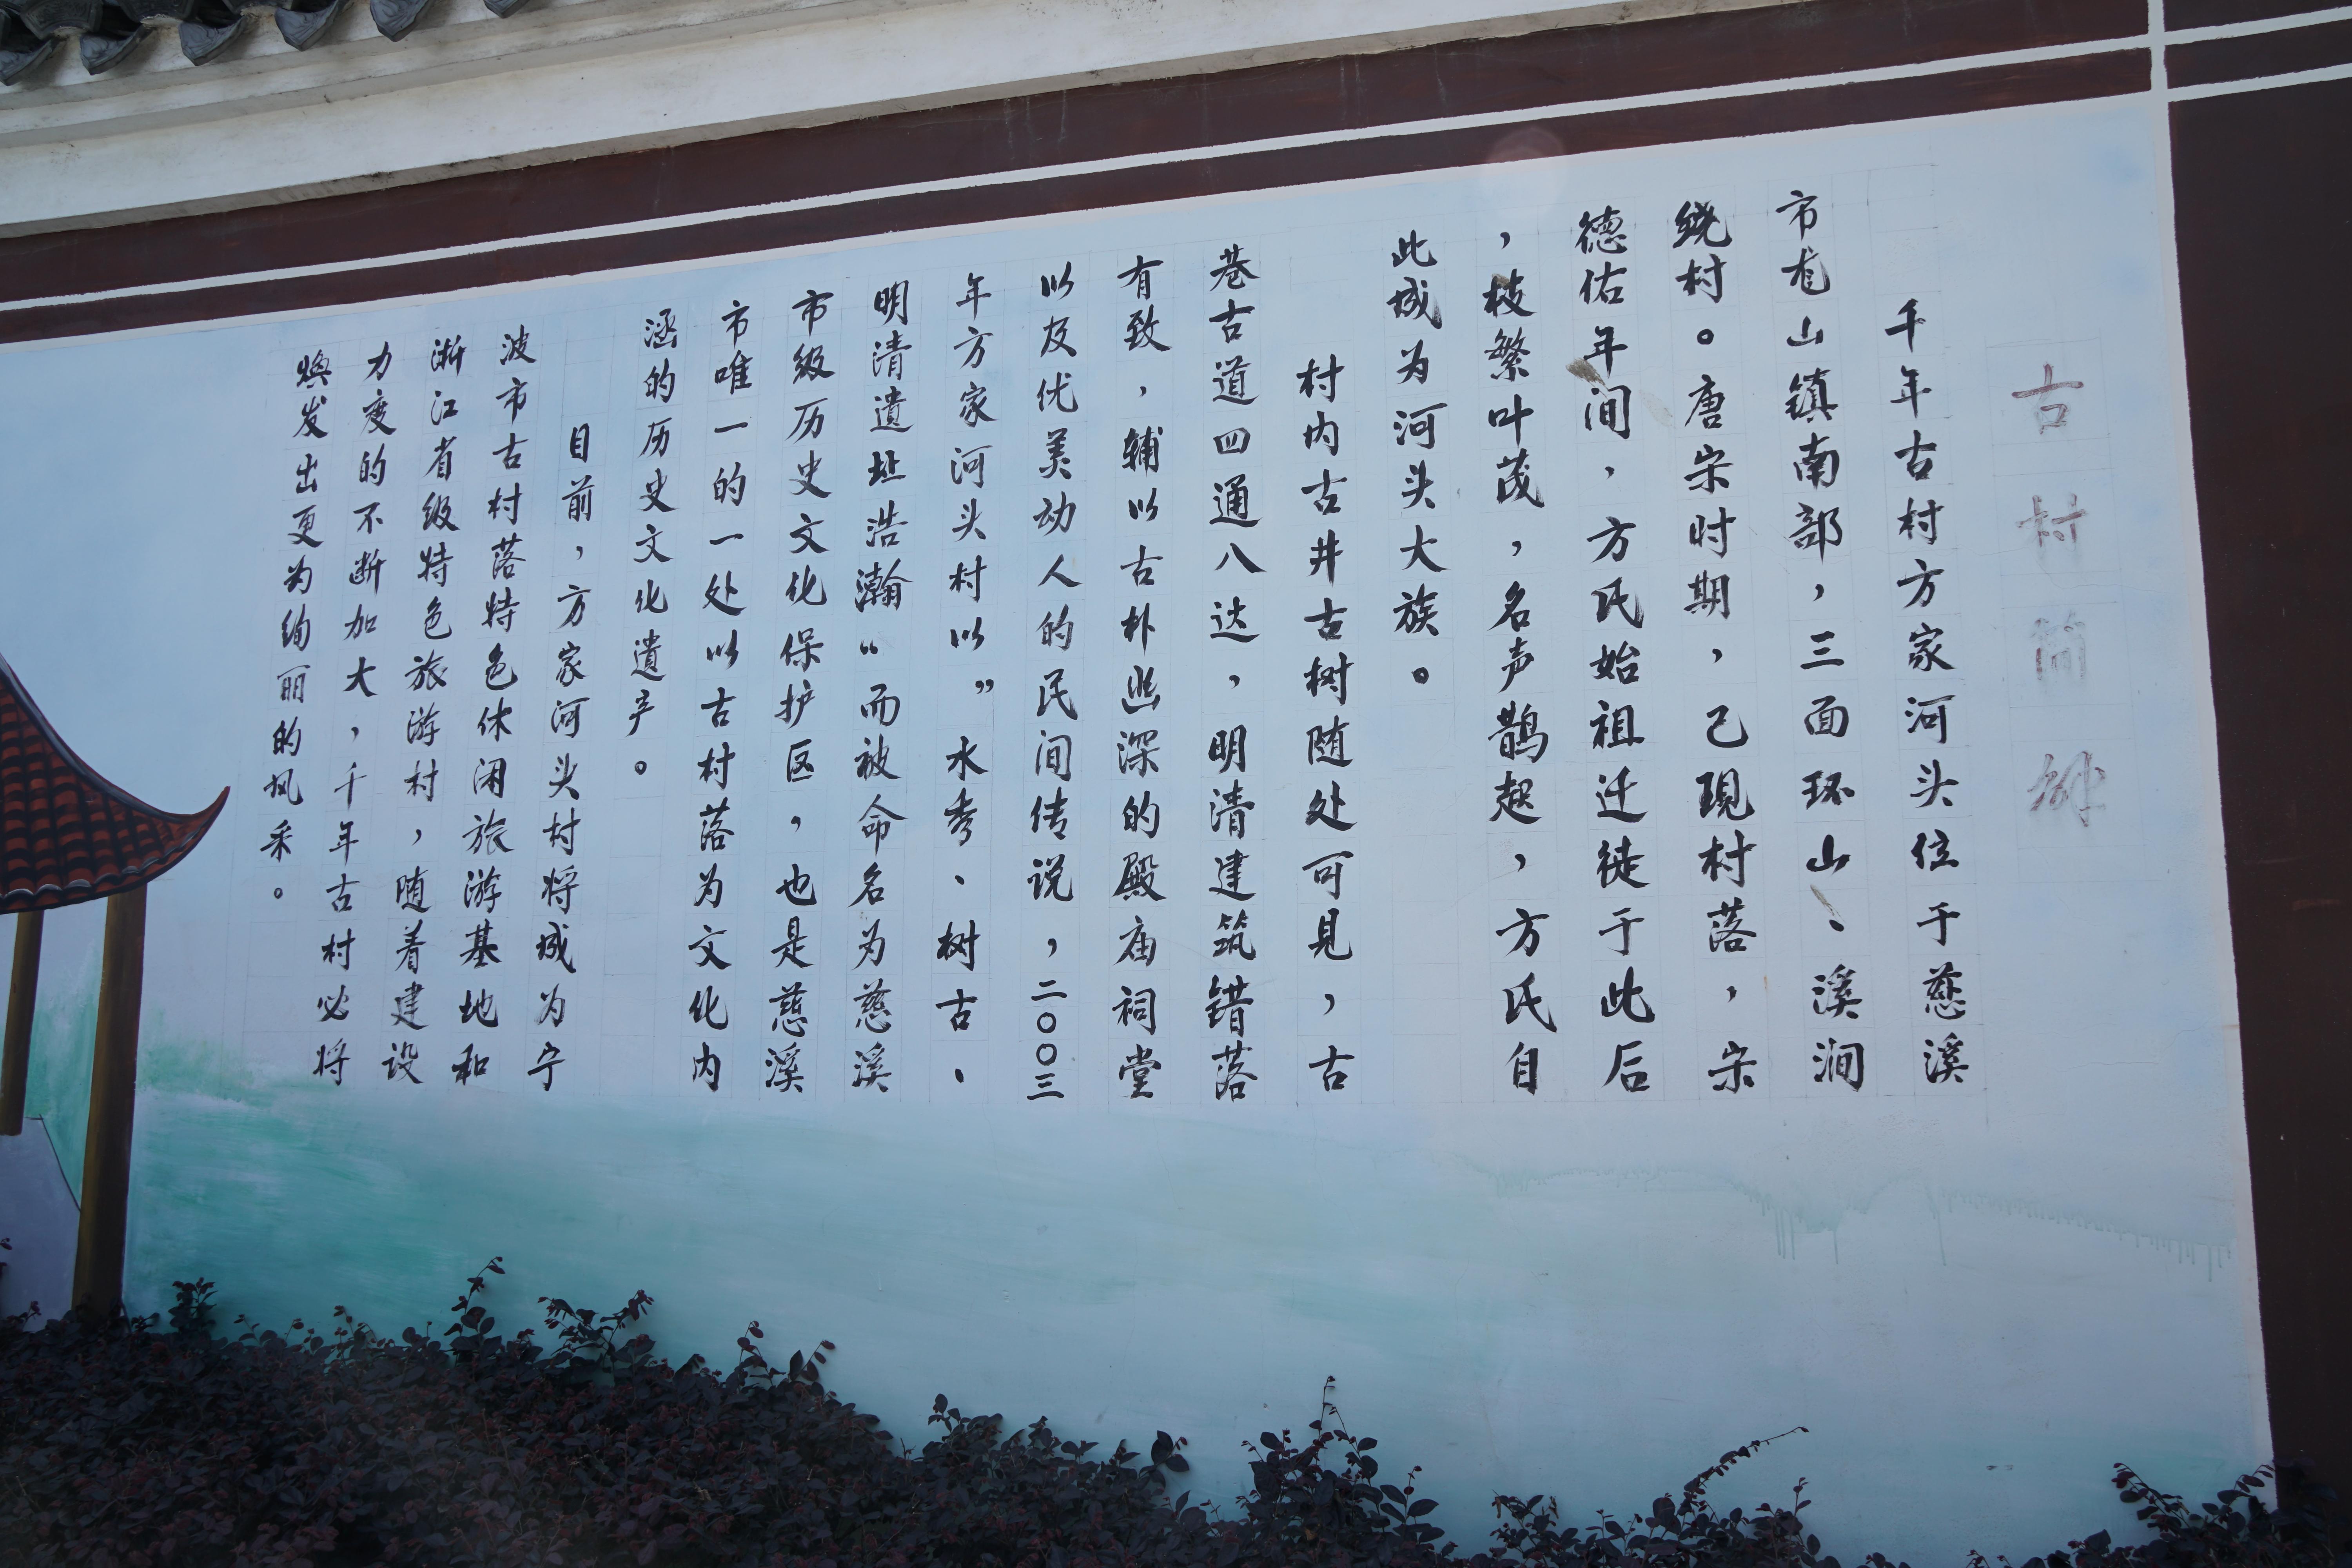 古村简介
千年古村方家河头位于慈溪
市龙山镇南部，三面环山、溪涧
绕村。唐宋时期，己現村落，宋
德佑年间，方氏始祖迁徒于此后
，枝繁叶茂，名声鹊起，方氏自
此城为河头大族。
村内古井古树随处可見，古
巷古道四通八达，明清建筑错落
有致，辅以古朴幽深的殿庙祠堂
以及优美动人的民间传说，二〇〇三
年方家河头村以”水秀、树古、
明清遗址浩瀚“而被命名为慈溪
市级历史文化保护区，也是慈溪
市唯一的一处以古村落为文化内
涵的历史文化遗产。
目前，方家河头村将城为宁
波市古村落特色休闲旅游基地和
浙江省级特色旅游村，随着建设
力度的不断加大，千年古村必将
焕发出更为绚丽的风采。